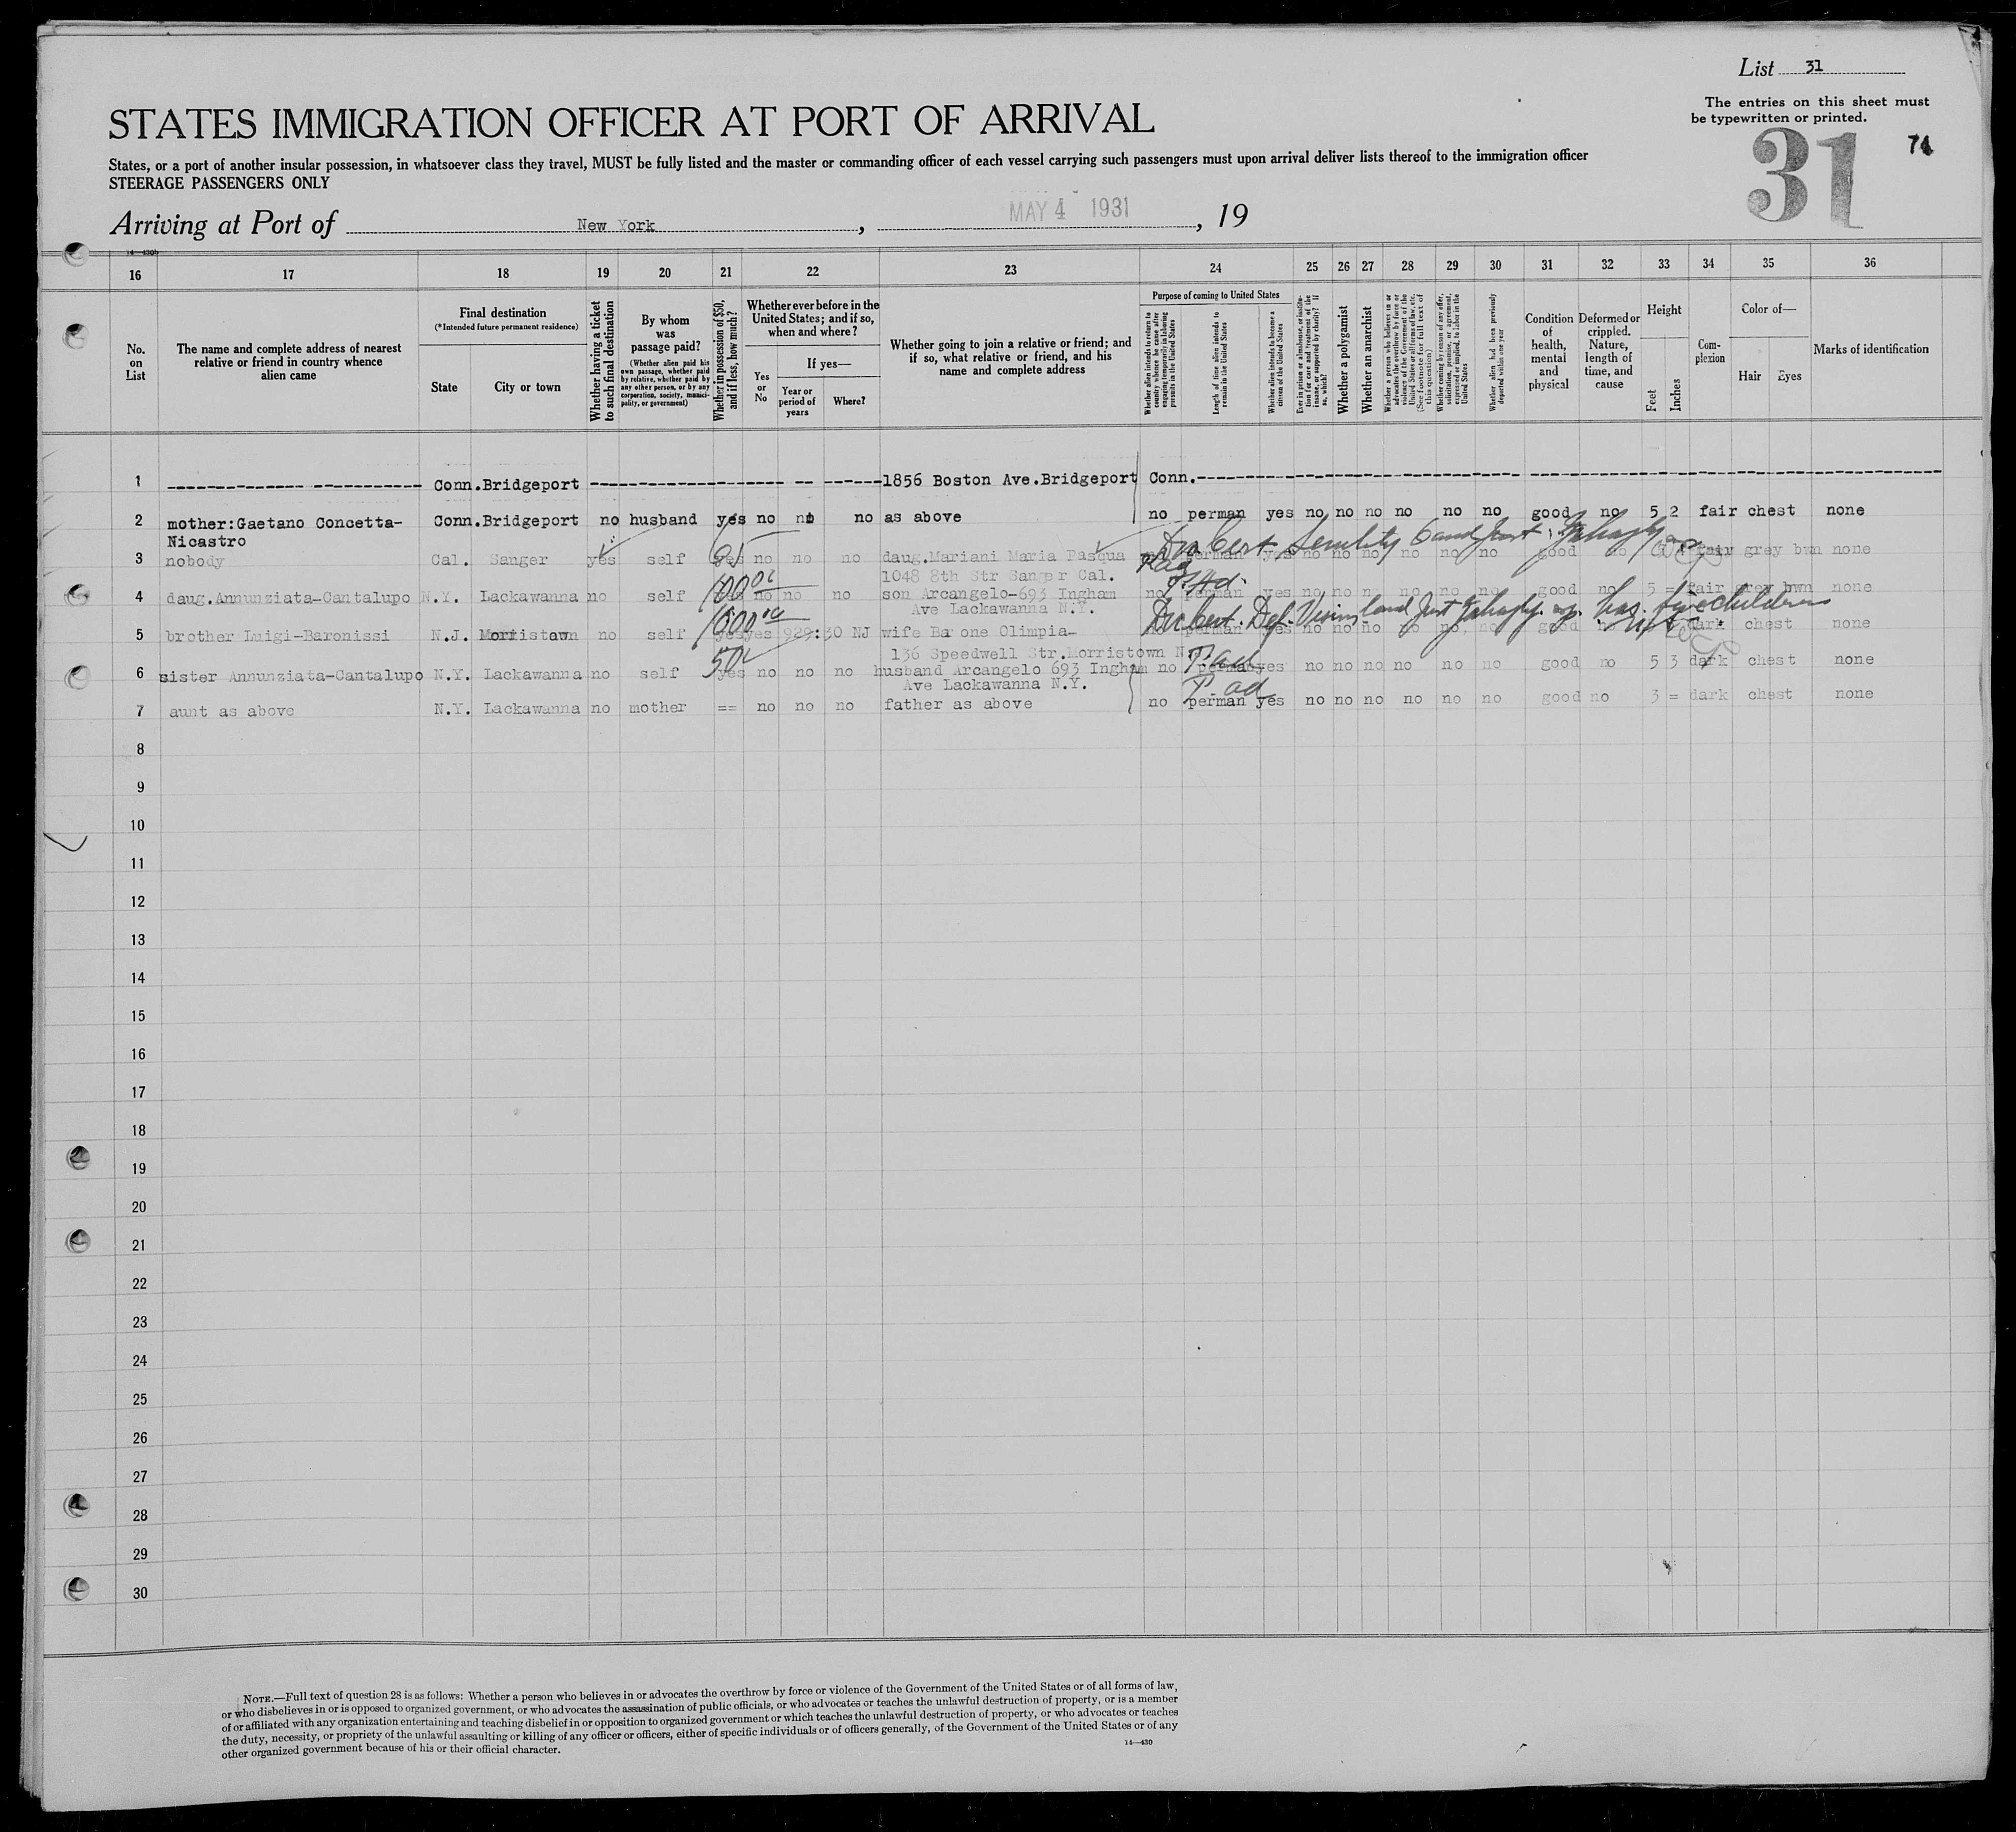 List 31
The entries on this sheet must
be typewritten or printed.
31
74
STATES IMMIGRATION OFFICER AT PORT OF ARRIVAL
States, or a port of another insular possession, in whatsoever class they travel, MUST be fully listed and the master or commanding officer of each vessel carrying such passengers must upon arrival deliver lists thereof to the immigration officer
STEERAGE PASSENGERS ONLY
Arriving at Port of New York, MAY 4 1931, 19
14—430b
16 17 18 19 20 21 22 23 24 25 26 27 28 29 30 31 32 33 34 35 36
No. on List
The name and complete address of nearest relative or friend in country whence alien came
Final destination
(*Intended future permanent residence)
State
City or town
Whether having a ticket to such final destination
By whom was passage paid?
(Whether alien paid his own passage, whether paid by relative, whether paid by any other person, or by any corporation, society, municipality, or government)
Whether in possession of $50, and if less, how much?
Whether ever before in the United States; and if so, when and where?
Yes or No
If yes—
Year or period of years
Where?
Whether going to join a relative or friend; and if so, what relative or friend, and his name and complete address
Purpose of coming to United States
Whether alien intends to return to country whence he came after engaging temporarily in laboring pursuits in the United States
Length of time alien intends to remain in the United States
Whether alien intends to become a citizen of the United States
Ever in prison or almshouse, or institution for care and treatment of the insane, or supported by charity? If so, which?
Whether a polygamist
Whether an anarchist
Whether a person who believes in or advocates the overthrow by force or violence of the Government of the United States or all forms of law, etc. (See footnote for full text of this question)
Whether coming by reason of any offer, solicitation, promise, or agreement, expressed or implied, to labor in the United States
Whether alien had been previously deported within one year
Condition of health, mental and physical
Deformed or crippled. Nature, length of time, and cause
Height
Feet
Inches
Complexion
Color of—
Hair
Eyes
Marks of identification
1 Conn. Bridgeport 1856 Boston Ave.Bridgeport Conn.
2 mother:Gaetano Concetta- Conn. Bridgeport no husband yes no no no as above no perman yes no no no no no no good no 5 2 fair chest none
Nicastro
3 nobody Cal. Sanger yes self yes no no no daug.Mariani Maria Pasqua perman yes no no no no no no good no fair grey bwn none
1048 8th Str Sanger Cal.
4 daug.Annunziata-Cantalupo N.Y. Lackawanna no self no no no son Arcangelo-693 Ingham no perman yes no no no no no good no 5 - fair grey bwn none
Ave Lackawanna N.Y.
5 brother Luigi-Baronissi N.J. Morristown no self yes yes 929:30 NJ wife Barone Olimpia- perman yes no no no no no no good dark chest none
136 Speedwell Str.Morristown N.J.
6 sister Annunziata-Cantalupo N.Y. Lackawanna no self yes no no no husband Arcangelo 693 Ingham no perman yes no no no no no no good no 5 3 dark chest none
Ave Lackawanna N.Y.
7 aunt as above N.Y. Lackawanna no mother == no no no father as above no perman yes no no no no no no good no 3 = dark chest none
8
9
10
11
12
13
14
15
16
17
18
19
20
21
22
23
24
25
26
27
28
29
30
NOTE.—Full text of question 28 is as follows: Whether a person who believes in or advocates the overthrow by force or violence of the Government of the United States or of all forms of law,
or who disbelieves in or is opposed to organized government, or who advocates the assassination of public officials, or who advocates or teaches the unlawful destruction of property, or is a member
of or affiliated with any organization entertaining and teaching disbelief in or opposition to organized government or which teaches the unlawful destruction of property, or who advocates or teaches
the duty, necessity, or propriety of the unlawful assaulting or killing of any officer or officers, either of specific individuals or of officers generally, of the Government of the United States or of any
other organized government because of his or their official character.
14—430